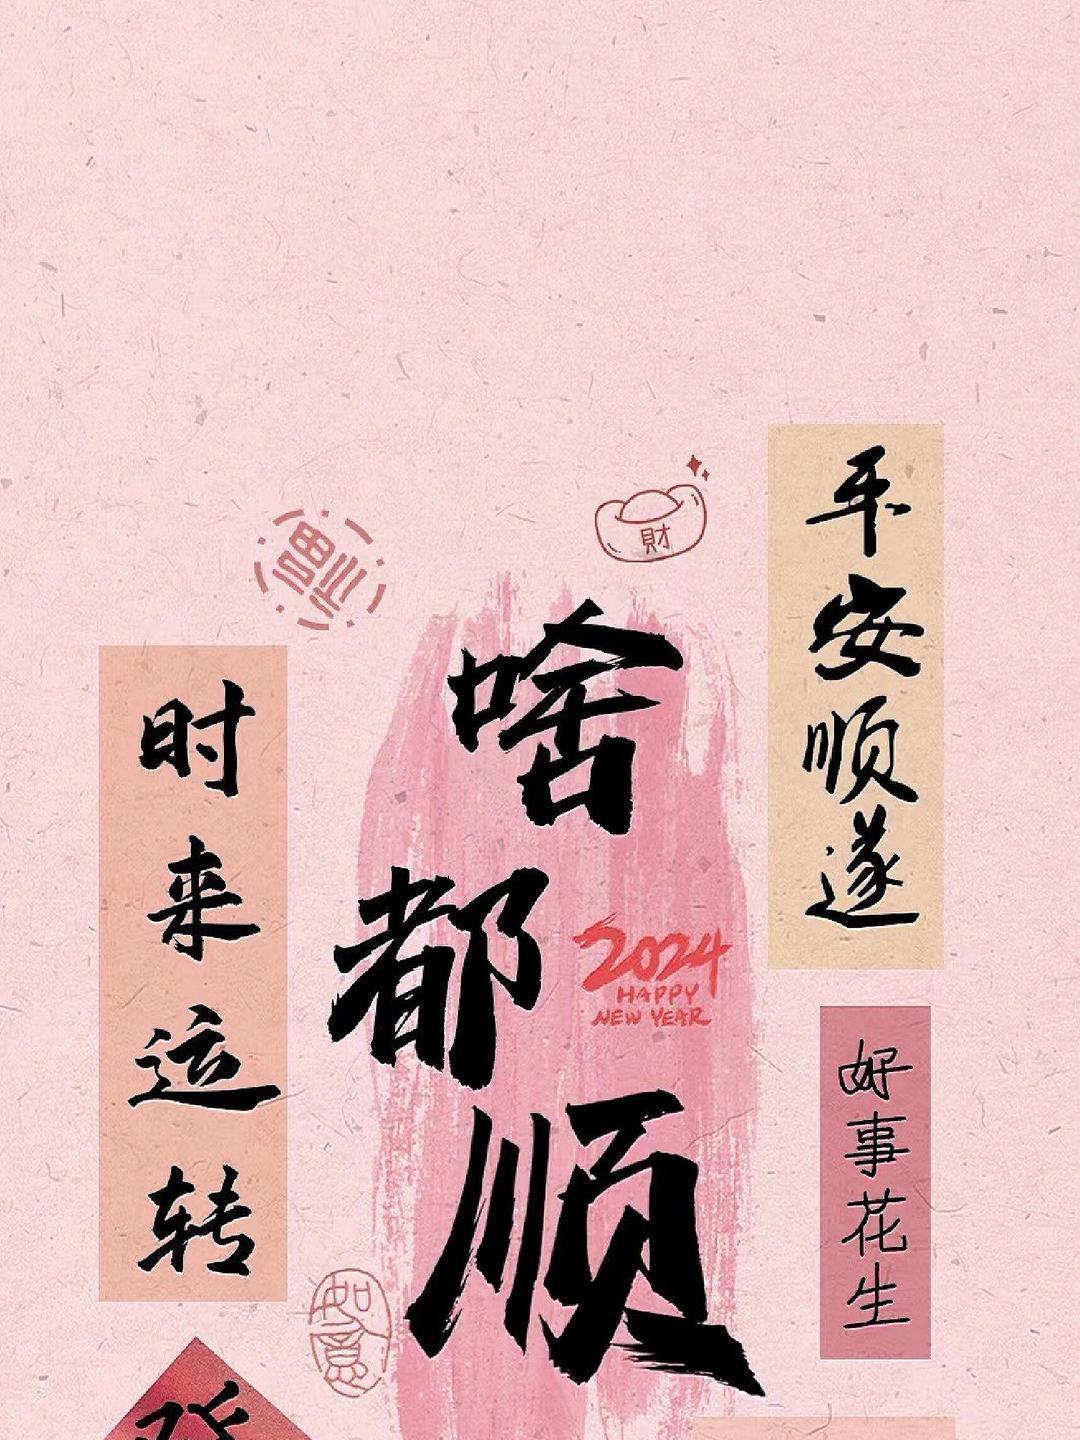 平安顺遂
財
時来运转
啥都顺
2024
HAPPY
NEW YEAR
好事花生
如意